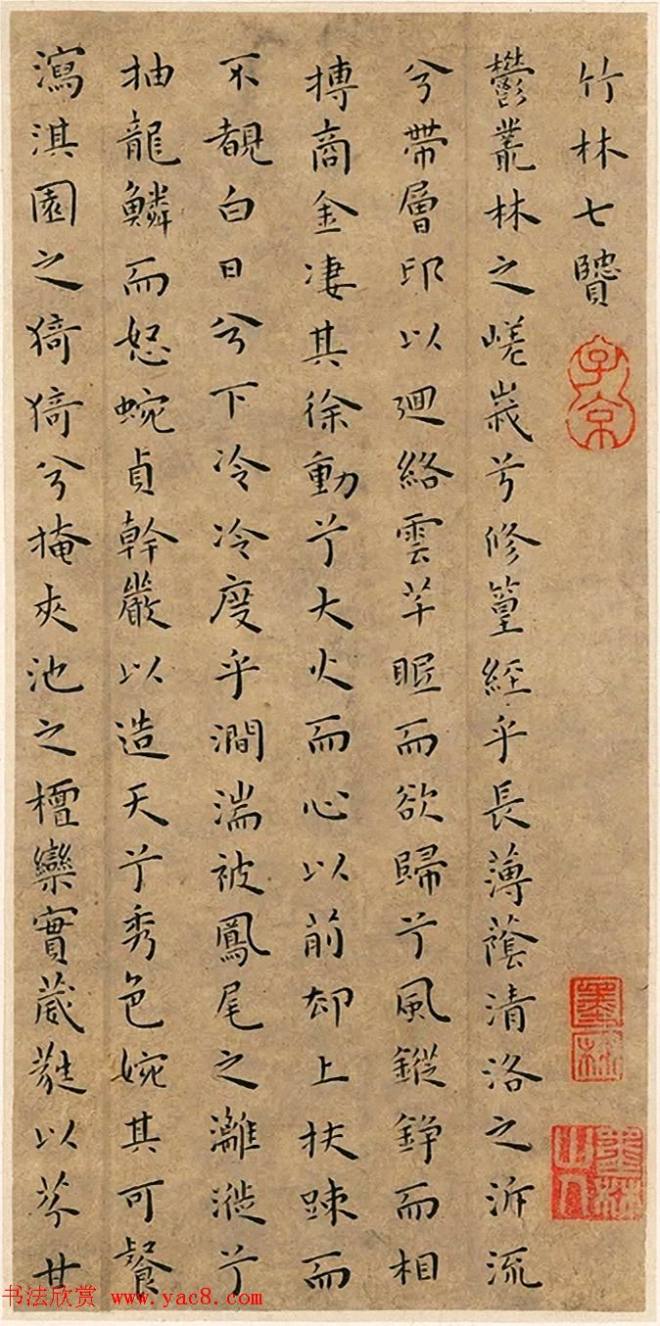 竹林七贒
鬱叢林之嵯峩兮修篁經乎長薄蔭清洛之泝流
兮帶層邙以迴絡雲芊眠而欲歸兮風鏦錚而相
摶商金凄其徐動兮大火而心以前却上扶踈而
不覩白日兮下冷冷度乎澗湍被鳳尾之灕漇兮
抽龍鱗而怒蜿貞幹嚴以造天兮秀色婉其可餐
瀉淇園之猗猗兮掩夾池之檀欒實葳蕤以芬甘
子京
墨林
墨林山人
书法欣赏 www.yac8.com